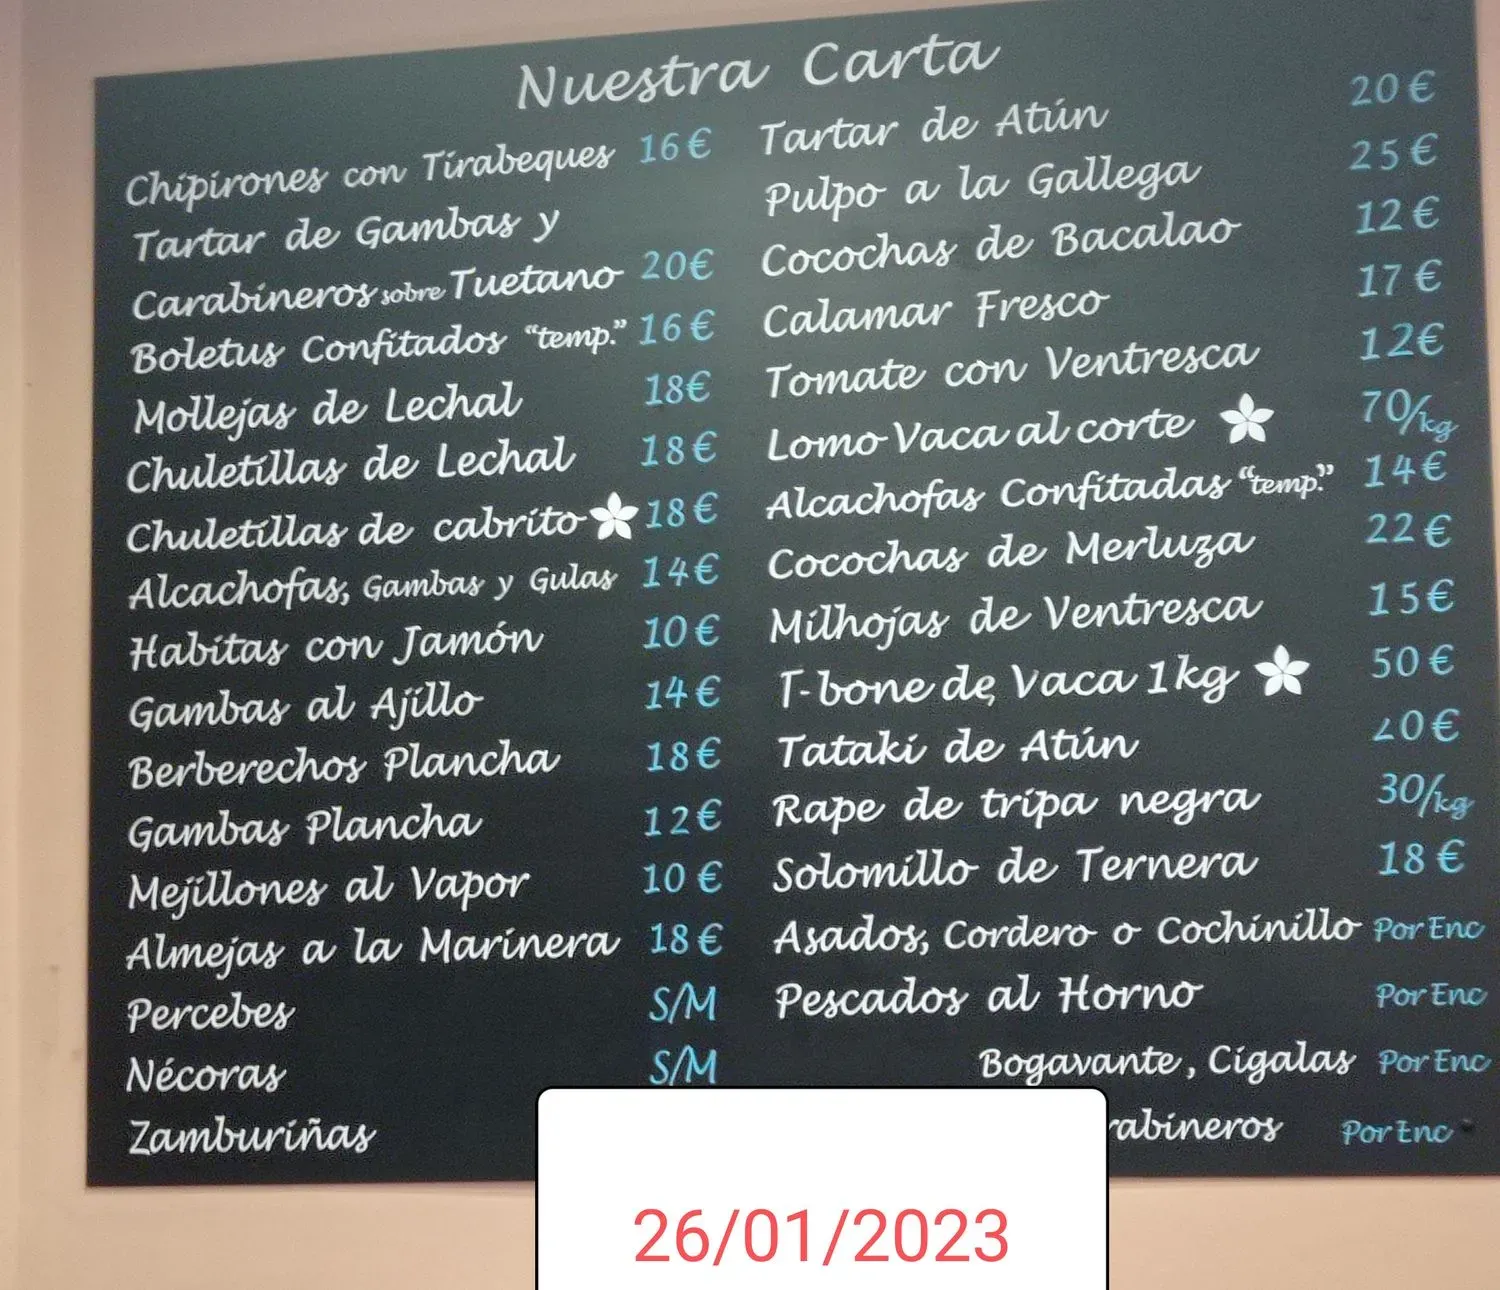 Nuestra Carta
Chipirones con Tirabeques 16€
Tartar de Gambas y
Carabineros sobre Tuetano 20€
Boletus Confitados “temp.” 16€
Mollejas de Lechal 18€
Chuletillas de Lechal 18€
Chuletillas de cabrito 18€
Alcachofas, Gambas y Gulas 14€
Habitas con Jamón 10€
Gambas al Ajillo 14€
Berberechos Plancha 18€
Gambas Plancha 12€
Mejillones al Vapor 10€
Almejas a la Marinera 18€
Percebes S/M
Nécoras S/M
Zamburiñas
Tartar de Atún 20€
Pulpo a la Gallega 25€
Cocochas de Bacalao 12€
Calamar Fresco 17€
Tomate con Ventresca 12€
Lomo Vaca al corte 70/kg
Alcachofas Confitadas “temp.” 14€
Cocochas de Merluza 22€
Milhojas de Ventresca 15€
T-bone de Vaca 1kg 50€
Tataki de Atún 20€
Rape de tripa negra 30/kg
Solomillo de Ternera 18€
Asados, Cordero o Cochinillo Por Enc
Pescados al Horno Por Enc
Bogavante, Cigalas Por Enc
rabineros Por Enc
26/01/2023